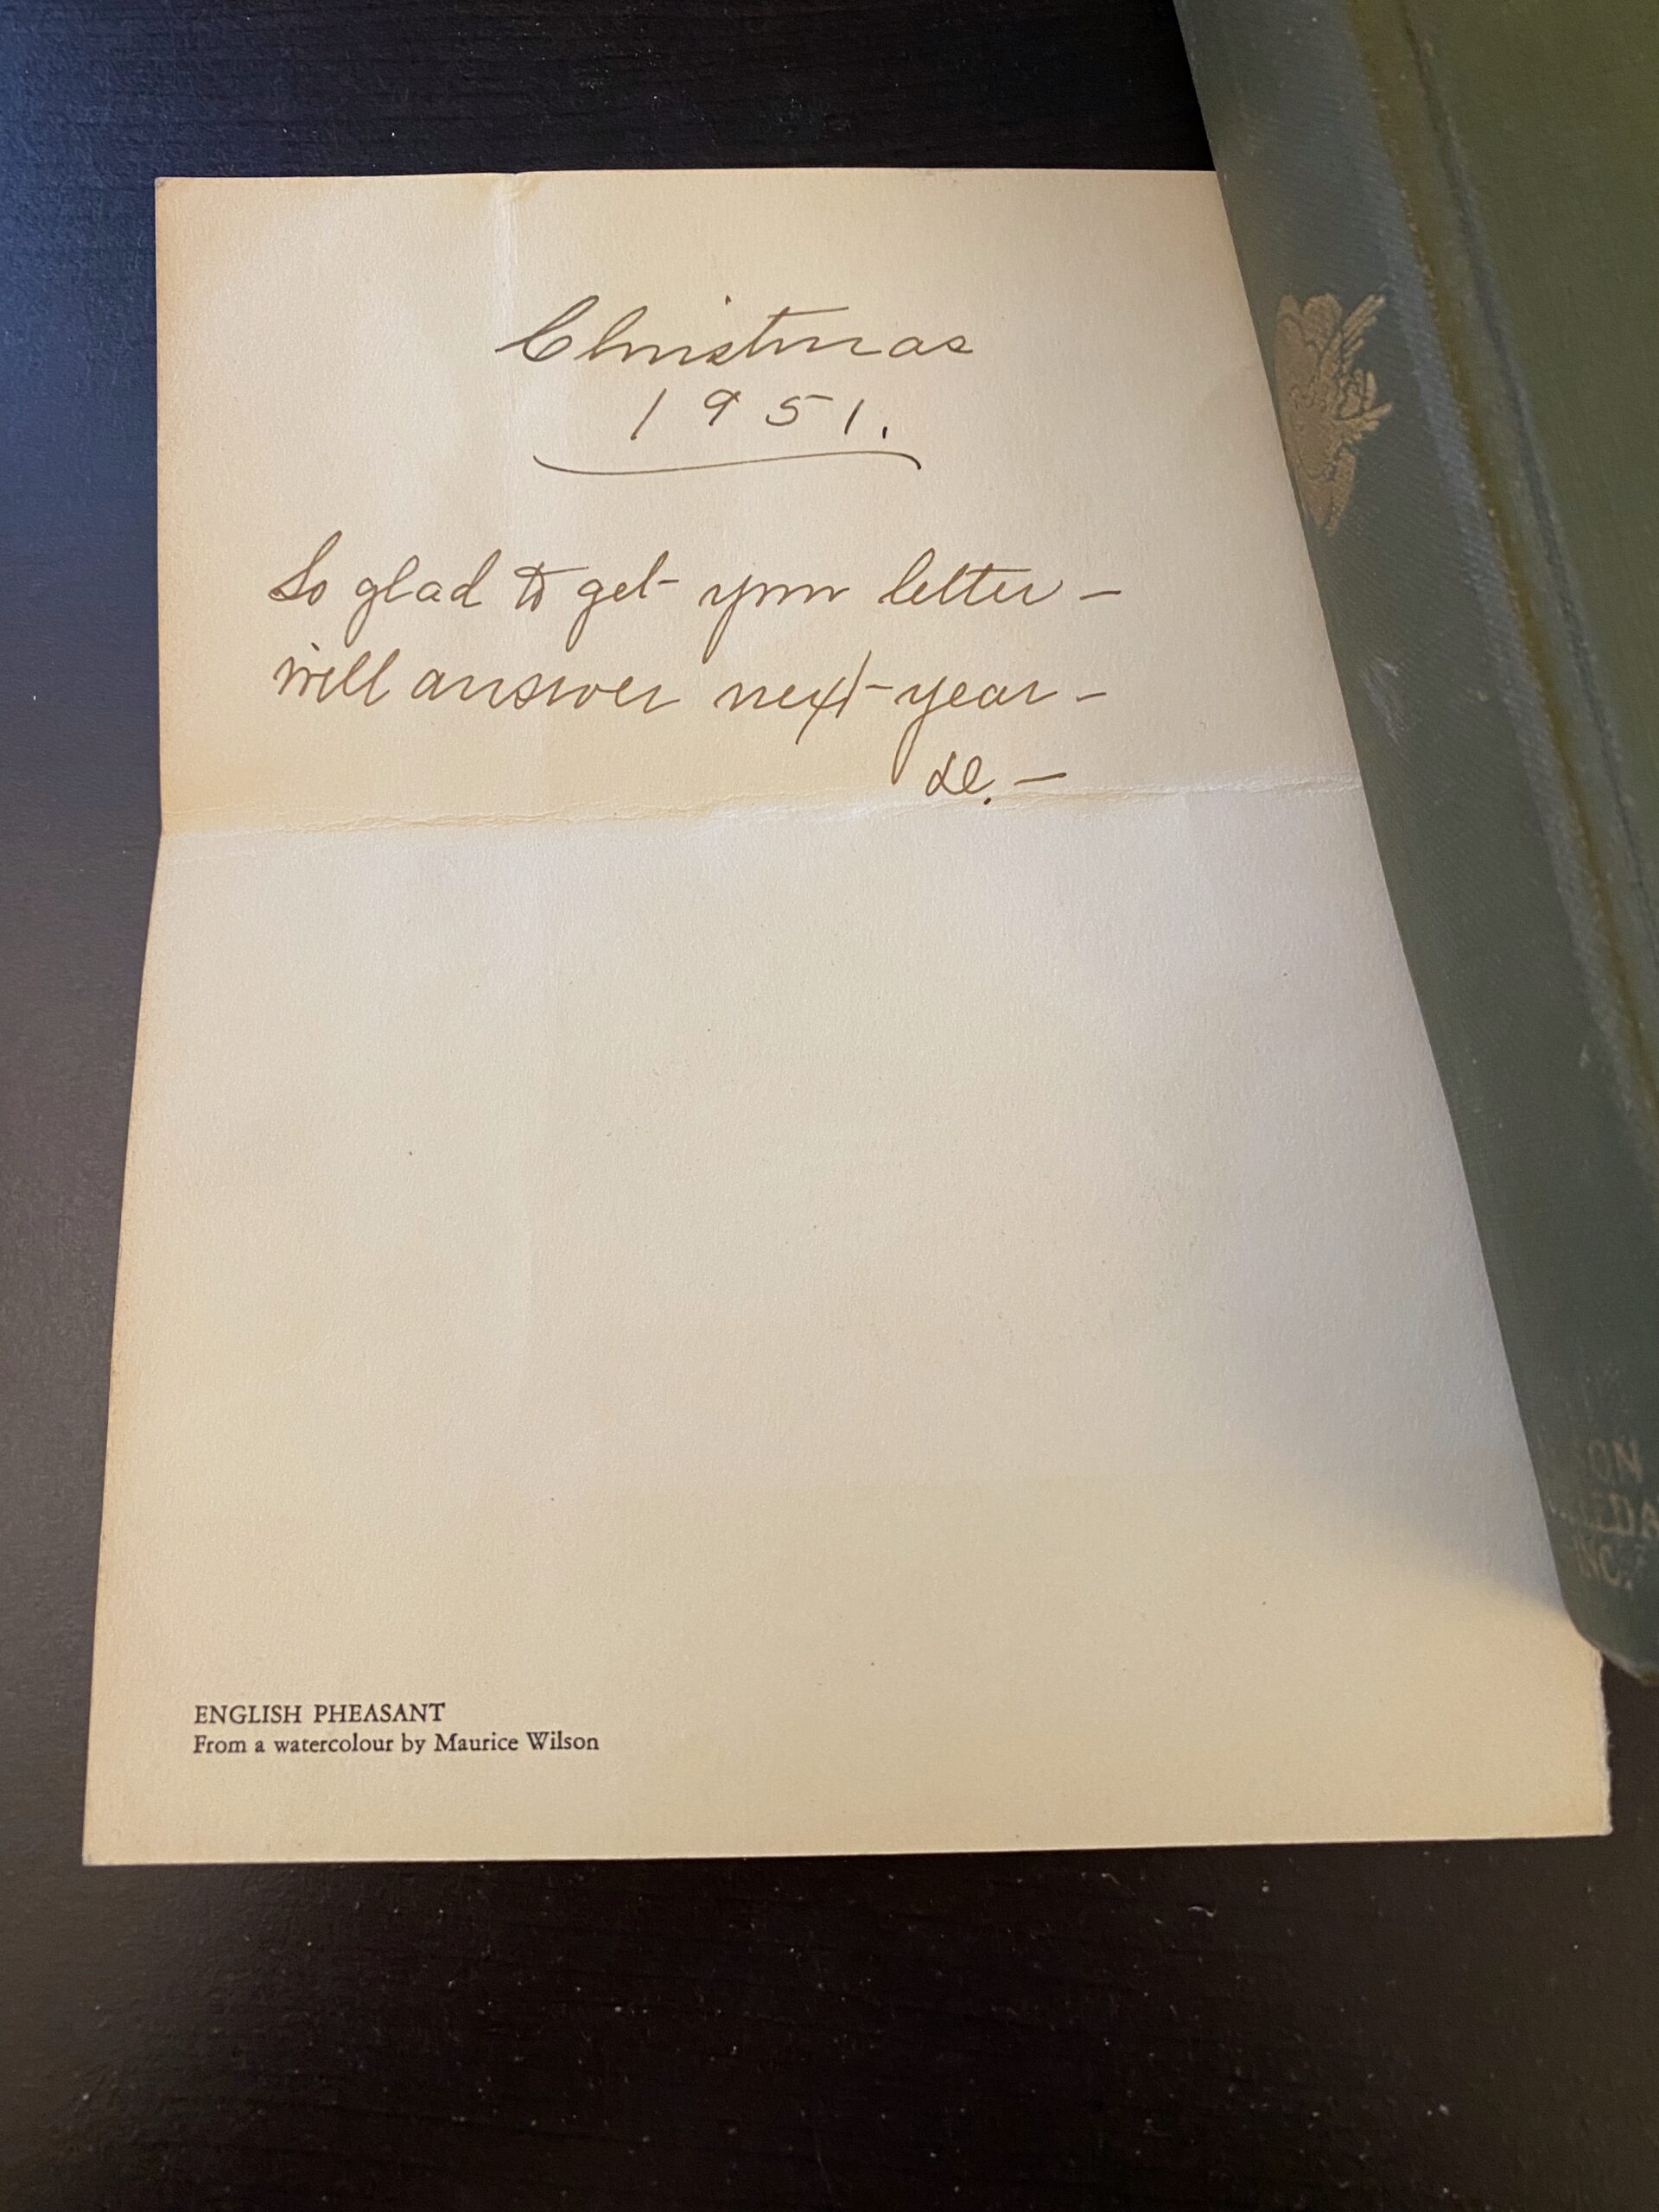 Christmas
1951.
So glad to get your letter —
will answer next year —
ENGLISH PHEASANT
From a watercolour by Maurice Wilson
ON
INC.